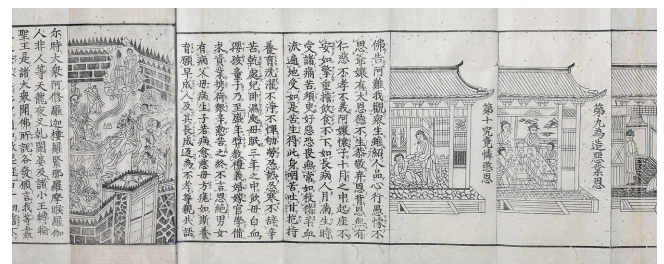 第九為造惡業恩
第十究竟憐愍恩
佛告阿難我觀衆生雖紹人品心行愚懞不
思爺孃有大恩德不生恭敬棄恩背恩無有
仁慈不孝不義阿孃懷子十月之中起座不
安如擎重擔飲食不下如長病人月滿生時
受諸痛苦須臾好惡恐畏無常如殺猪羊血
流遍地受如是苦生得此身咽苦吐甘抱持
養育洗濯不淨不憚劬勞忍熱忍寒不辭辛
苦乾處兒卧濕處母眠三年之中飲母白血
嬰孩童子乃至盛年獎教禮義婚嫁官學備
求資業携荷艱辛懃苦之終不言恩絕男女
有病父母病生子若病愈慈母方瘥如斯養
育願早成人及其長成返爲不孝尊親共語
尒時大衆阿修羅迦樓羅緊那羅摩睺羅伽
人非人等天龍夜叉乹闥婆及諸小王轉輪
聖王是諸大衆聞佛所說各發願言我等盡